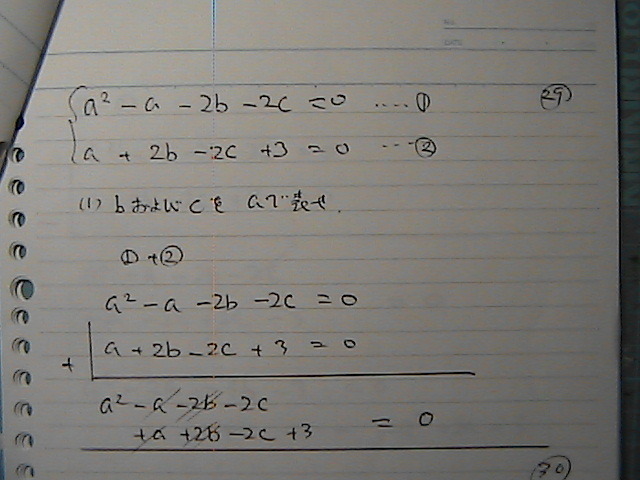 NO.
DATE
a² - a - 2b - 2c = 0 ····① ㉙
a + 2b - 2c + 3 = 0 ···②
(1) bおよびcをaで表せ.
① + ②
a² - a - 2b - 2c = 0
+ a + 2b - 2c + 3 = 0
a² - a - 2b - 2c
+a +2b - 2c + 3 = 0
㉚